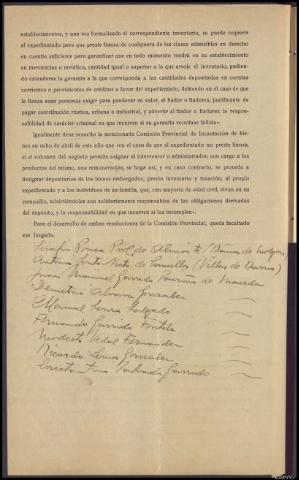 establecimientos, y una vez formalizado el correspondiente inventario, se puede requerir
al expedientado para que preste fianza de cualquiera de las clases admisibles en derecho
en cuantía suficiente para garantizar que en todo momento tendrá en su establecimiento
en mercancías o metálico, cantidad igual o superior a la que arroje el inventario, pudien-
do extenderse la garantía a la que corresponda a las cantidades depositadas en cuentas
corrientes o provinientes de créditos a favor del expedientado, debiendo en el caso de que
la fianza sean personas exigir para ponderar su valor, al fiador o fiadores, justificante de
pagar contribución rústica, urbana o industrial, y advertir al fiador o fiadores la respon-
sabilidad de carácter criminal en que incurren si su garantía resultase fallida».
Igualmente tiene resuelto la mencionada Comisión Provincial de Incautación de bie-
nes en ocho de abril de este año que «en el caso de que el expedientado no preste fianza,
si el volumen del negocio permite asignar al interventor o administrador, con cargo a los
productos del mismo, una remuneración, se haga así, y en caso contrario, se proceda a
designar depositarios de los bienes embargados, previo inventario y tasación, al propio
expedientado y a los individuos de su familia, que, con mayoría de edad civil, vivan en su
compañía, advirtiéndoles son solidariamente responsables de las obligaciones derivadas
del depósito, y la responsabilidad en que incurren si las incumplen».
Para el desarrollo de ambas resoluciones de la Comisión Provincial, queda facultado
ese Juzgado.
Serafín
Antonio
Juan Manuel Garrido
Demetrio Alvarez Gonzalez
Manuel Senra Salgado
Fernando Garrido
Modesto Vidal Fernandez
Ricardo Gonzalez
Constantino Garrido